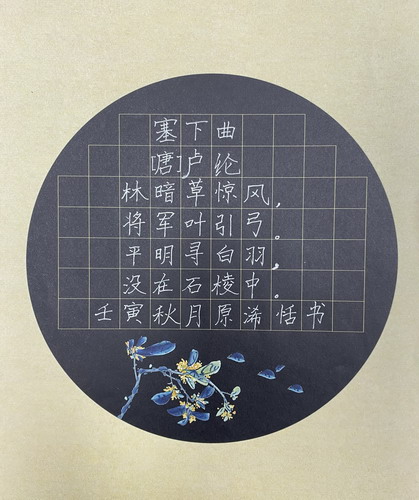 塞下曲
[唐]卢纶
林暗草惊风,
将军叶引弓。
平明寻白羽,
没在石棱中。
壬寅秋月原浠恬书